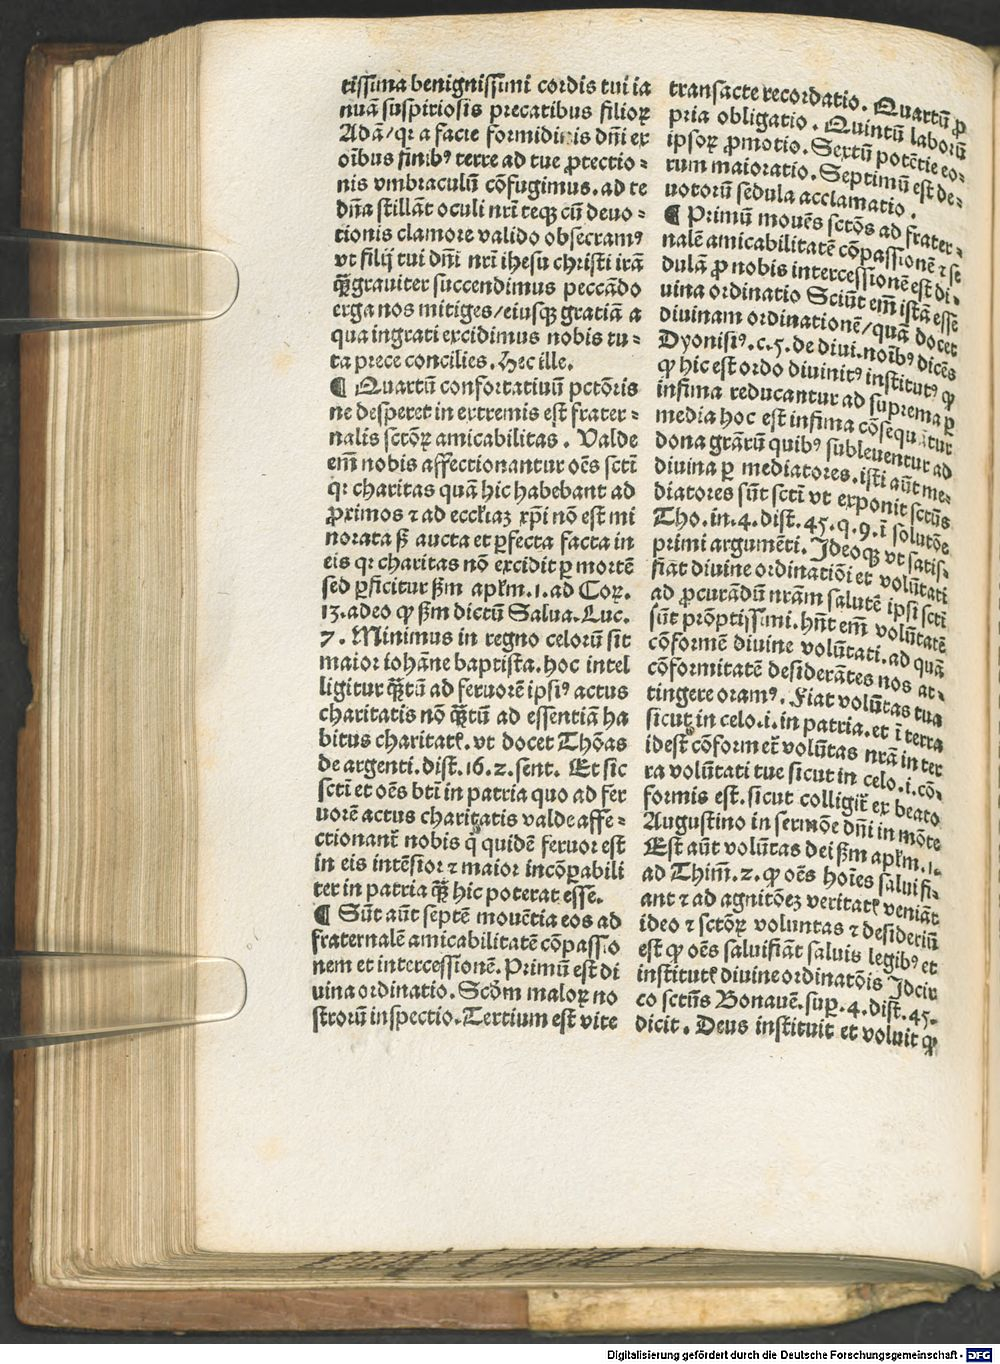 tissima benignissimi cordis tui ia
nuā suspiriosis precatibus filioꝝ
Adā/qꝛ a facie formidinis dn̄i ex
oībus finibꝰ terre ad tue ꝓtectio⸗
nis vmbraculū cōfugimus. ad te
dn̄a stillāt oculi nr̄i teqꝫ cū deuo⸗
tionis clamore valido obsecramꝰ
vt filij tui dn̄i nr̄i ihesu christi irā
quā grauiter succendimus peccādo
erga nos mitiges/eiusqꝫ gratiā a
qua ingrati excidimus nobis tu⸗
ta prece concilies. Hec ille.
¶ Quartū confortatiuū pctōris
ne desperet in extremis est frater⸗
nalis sctōꝝ amicabilitas. Valde
em̄ nobis affectionantur oēs sctī
qꝛ charitas quā hic habebant ad
ꝓximos ⁊ ad eccl̄iaꝫ xp̄i nō est mi
norata sꝫ aucta et ꝑfecta facta in
eis qꝛ charitas nō excidit ꝑ mortē
sed ꝑficitur ẜm apl̄m. 1. ad Coꝝ.
13. adeo ꝙ ẜm dictū Salua. Luc.
7. Minimus in regno celorū sit
maior iohāne baptista. hoc intel
ligitur quātū ad feruorē ipsiꝰ actus
charitatis nō quātū ad essentiā ha
bitus charitatꝭ. vt docet Thōas
de argenti. dist. 16. 2. sent. Et sic
sctī et oēs bt̄i in patria quo ad fer
uorē actus charitatis valde affe⸗
ctionant̄ nobis q̇ quidē feruor est
in eis intēsior ⁊ maior incōꝑabili
ter in patria quā hic poterat esse.
¶ Sūt aūt septē mouētia eos ad
fraternalē amicabilitatē cōpassio
nem et intercessionē. Primū est di
uina ordinatio. Scd̄m maloꝝ no
strorū inspectio. Tertium est vite
transacte recordatio. Quartū ꝓ
pria obligatio. Quintū laborū
ipsoꝝ ꝓmotio. Sextū potētie eo⸗
rum maioratio. Septimū est de⸗
uotorū sedula acclamatio.
¶ Primū mouēs sctōs ad frater⸗
nalē amicabilitatē cōpassionē ⁊ se
dulā ꝓ nobis intercessionē est di⸗
uina ordinatio Sciūt em̄ istā esse
diuinam ordinationē/quā docet
Dyonisiꝰ. c. 5. de diui. noībꝰ dicēs
ꝙ hic est ordo diuinitꝰ institutꝰ ꝙ
infima reducantur ad suprema ꝑ
media hoc est infima cōsequātur
dona grārū quibꝰ subleuentur ad
diuina ꝑ mediatores. isti aūt me⸗
diatores sūt sctī vt exponit sctūs
Tho. in. 4. dist. 45. q. 9. ī solutōe
primi argumēti. Ideoqꝫ vt satis⸗
fiāt diuine ordinatiōi et volūtati
ad ꝓcurādū nr̄am salutē ipsi sctī
sūt prōptissimi. hn̄t em̄ volūtatē
cōformē diuine volūtati. ad quā
cōformitatē desiderātes nos at⸗
tingere oramꝰ. Fiat volūtas tua
sicut in celo. i. in patria. et ī terra
idest cōformet̄ volūtas nrā in ter
ra volūtati tue sicut in celo. i. cō⸗
formis est. sicut colligit̄ ex beato
Augustino in sermōe dn̄i in mōte
Est aūt volūtas dei ẜm apl̄m. 1.
ad Thim̄. 2. ꝙ oēs hoīes saluifi⸗
ant ⁊ ad agnitōeꝫ veritatꝭ veniāt
ideo ⁊ sctōꝝ voluntas ⁊ desideriū
est ꝙ oēs saluifiāt saluis legibꝰ et
institutꝭ diuine ordinatōis Idcir
co sctūs Bonauē. suꝑ. 4. dist. 45.
dicit. Deus instituit et voluit ꝙ
Digitalisierung gefördert durch die Deutsche Forschungsgemeinschaft - DFG